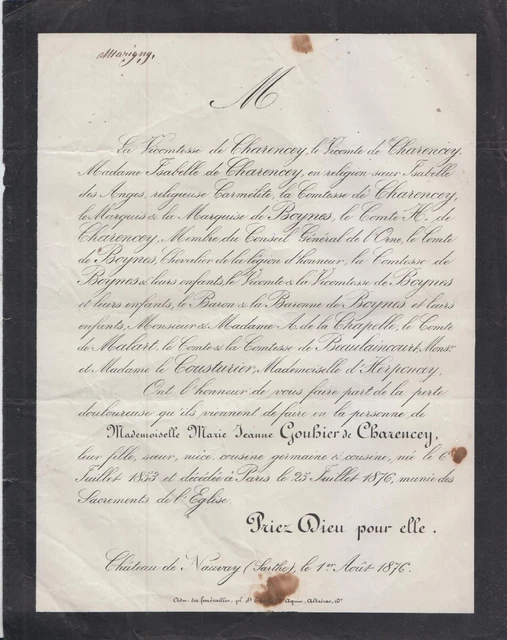 Marigny,
M
La Vicomtesse de Charencey, le Vicomte de Charencey,
Madame Isabelle de Charencey, en religion sœur Isabelle
des Anges, religieuse Carmélite, la Comtesse de Charencey,
le Marquis & la Marquise de Boynes, le Comte H. de
Charencey, Membre du Conseil Général de l'Orne, le Comte
de Boynes, Chevalier de la légion d'honneur, la Comtesse de
Boynes & leurs enfants, le Vicomte & la Vicomtesse de Boynes
et leurs enfants, le Baron & la Baronne de Boynes et leurs
enfants, Monsieur & Madame A. de la Chapelle, le Comte
de Malart, le Comte & la Comtesse de Beaulaincourt, Monsr.
et Madame le Cousturier, Mademoiselle d'Herponcey,
Ont l'honneur de vous faire part de la perte
douloureuse qu'ils viennent de faire en la personne de
Mademoiselle Marie Jeanne Gouhier de Charencey,
leur fille, sœur, nièce, cousine germaine & cousine, née le 6
Juillet 1853 et décédée à Paris le 25 Juillet 1876, munie des
Sacrements de l'Eglise.
Priez Dieu pour elle.
Château de Nauvay (Sarthe), le 1er Août 1876.
des funérailles, Aquin,